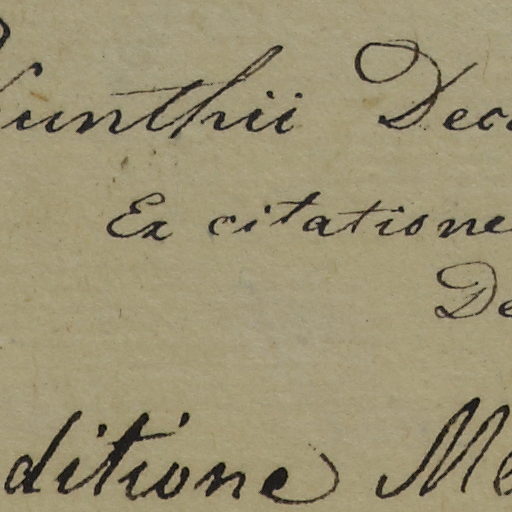 Kunthii Deca
Ex citatione
De
ditione Me